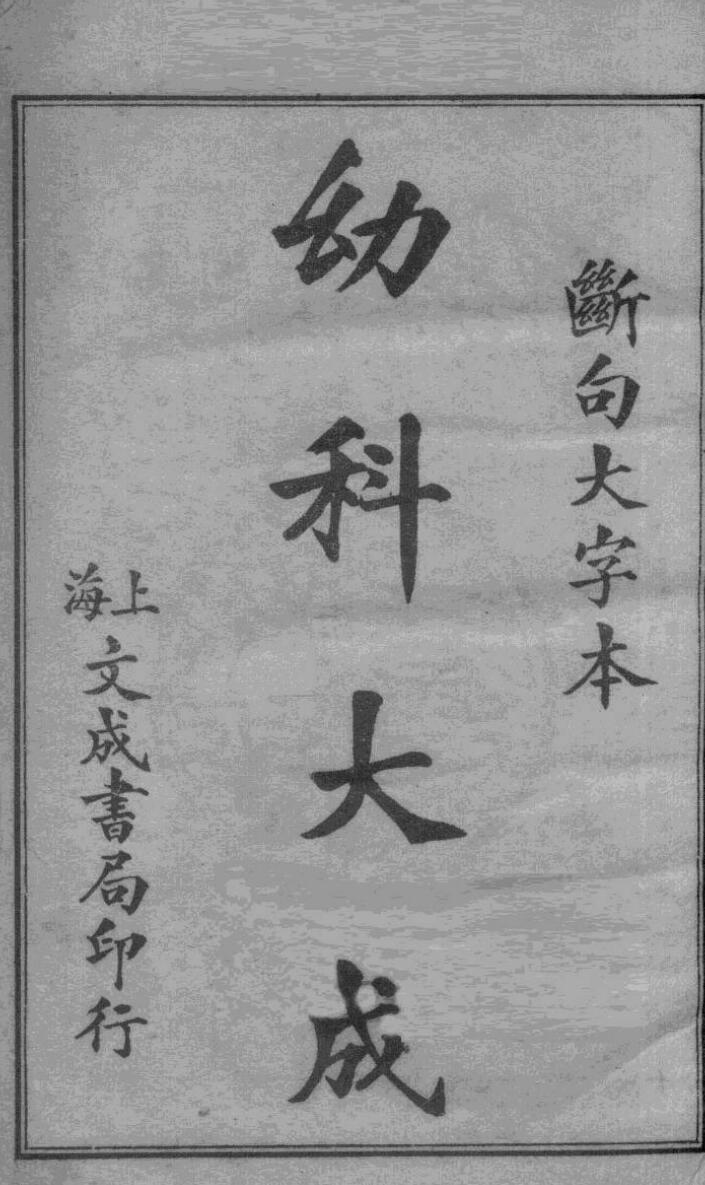 斷句大字本
幼科大成
上海
文成書局印行